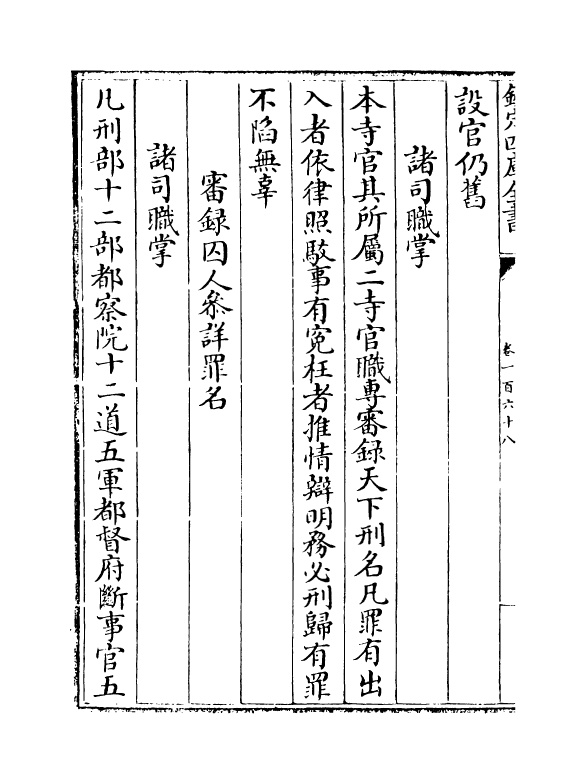 欽定四庫全書
卷一百六十八
設官仍舊
諸司職掌
本寺官其所屬二寺官職專審録天下刑名凡罪有出
入者依律照駁事有寃枉者推情辯明務必刑歸有罪
不陷無辜
審録囚人叅詳罪名
諸司職掌
凡刑部十二部都察院十二道五軍都督府斷事官五